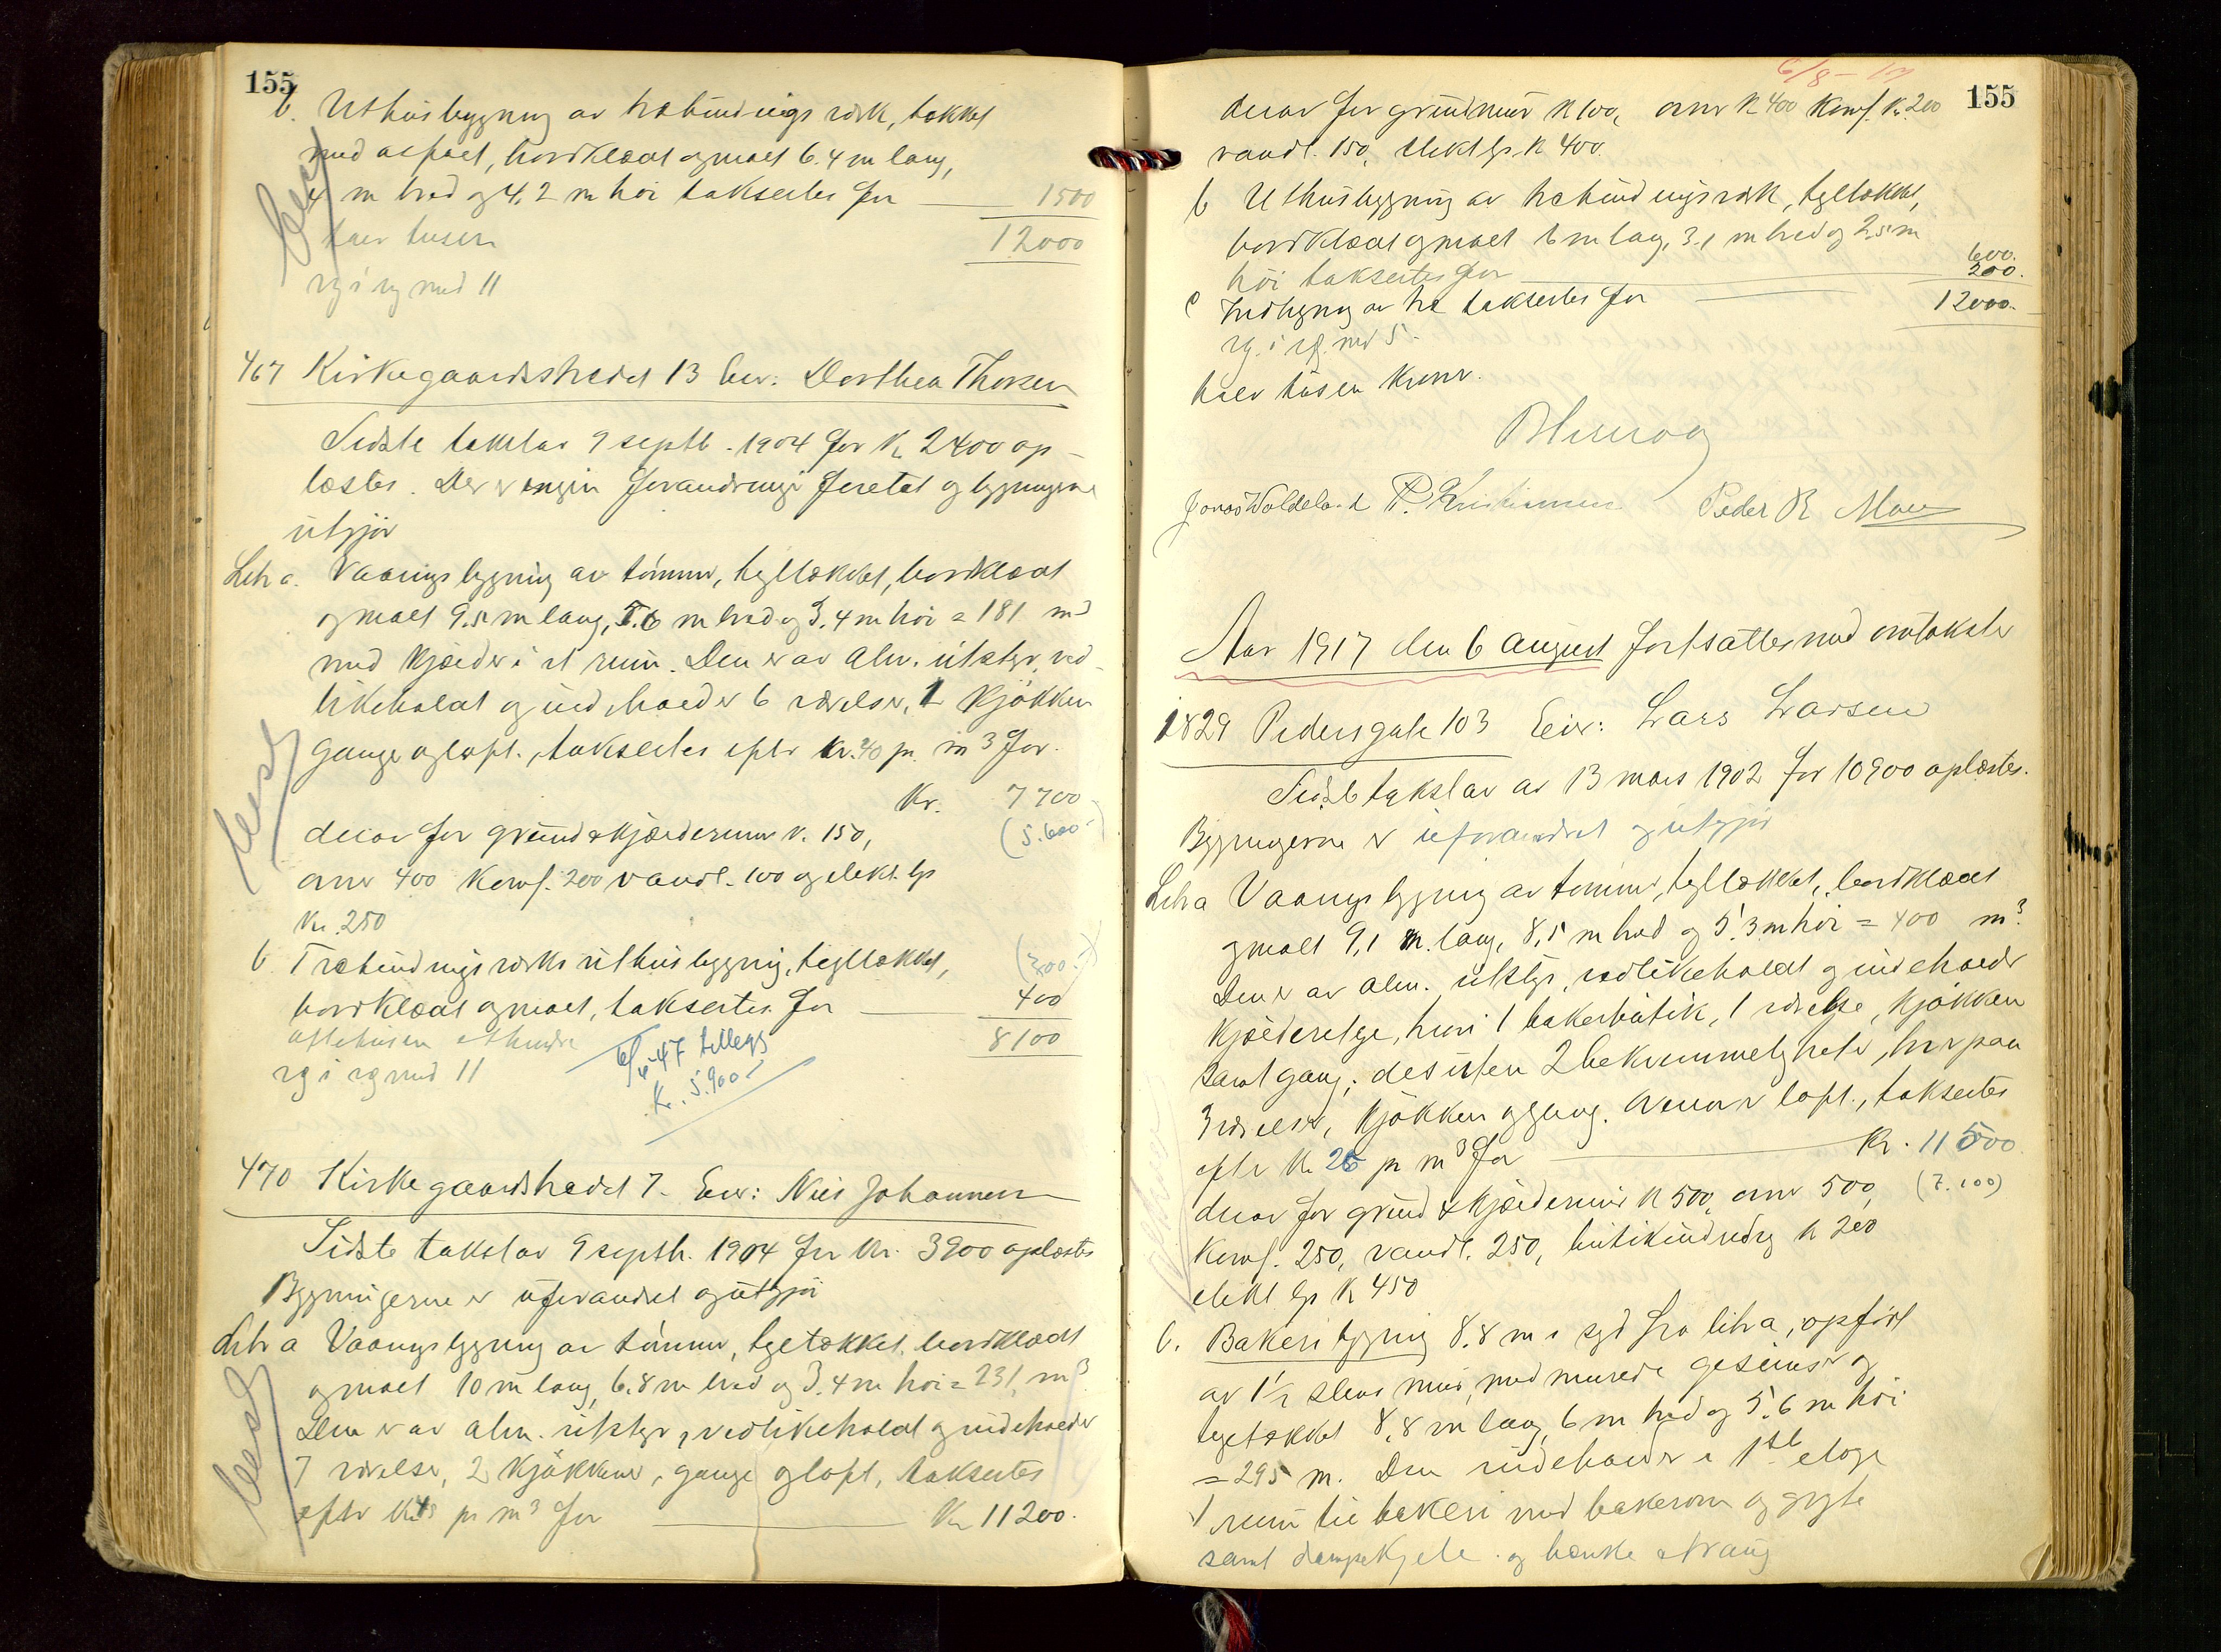 155
b. Uthusbygning av træbindings verk, tækket
med asfalt, bordklædt og malt 6.4 m lang,
4 m bred og 4,2 m høi takseertes for 1500
tolv tusen 12000
rg i rg med 11
467 Kirkegaardsstrædet 13 Eier: Dorthea Thorsen
Sidste takst av 9 septb. 1904 for Kr 2400 op-
læstes. Der er ingen forandringer foretat og bygningerne
utgjør
Litr a. Vaaningsbygning av tømmer, tegltækket, bordklædt
og malt 9.5 m lang, 5.6 m bred og 3.4 m høi = 181 m3
med kjælder i et rum. Den er av alm. utstyr, ved-
likeholdt og indeholder 6 værelser, 1 kjøkken
gange og loft, takseertes efter kr. 40 pr. m3 for
Kr. 7700
derav for grund & kjældermur k. 150, (5.600-)
ovner 400 komf. 200 vandl. 100 og elekt. lys
Kr. 250
b Træbindingsverks uthusbygning, tegltækket, (300.-)
bordklædt og malt, takseertes for 400
ottetusen ethundre 8100
rg i rg med 11
6/6-47 tillegg
Kr. 5.900.-
470 Kirkegaardstrædet 7. Eier: Nils Johannesen
Sidste takst av 9 septb. 1904 for Kr. 3900 oplæstes
Bygningerne er uforandret og utgjør
Litr a Vaaningsbygning av tømmer, tegltækket, bordklædt
og malt 10 m lang, 6.8 m bred og 3.4 m høi = 231 m3
Den er av alm. utstyr, vedlikeholdt og indeholder
7 værelser, 2 kjøkkener, gange og loft, takseertes
efter Kr 48 pr m3 for Kr 11200.
6/8-17
155
derav for grundmur K 100, ovner K 400 Komf. K. 200
vandl. 150, elekt lys K 400.
b Uthusbygning av træbindingsverk, tegltækket,
bordklædt og malt 6 m lang, 3.1 m bred og 2.5 m
høi takseertes for 600.
c Indhegning av træ takseertes for 200.
12000.
rg. i rg. med 5.
tolv tusen kroner.
Jonas Woldeland P. Kristiansen Peder R. Moe
Aar 1917 den 6 august fortsattes med omtakster
1829 Pedersgate 103 Eier: Lars Larsen
Sidste takst av av 13 mars 1902 for 10900 oplæstes.
Bygningerne er uforandret og utgjør
Litr a Vaaningsbygning av tømmer, tegltækket, bordklædt
og malt 9,1 m. lang, 8,5 m bred og 5.3 m høi = 400 m3.
Den er av alm. utstyr, vedlikeholdt og indeholder
kjælderetage, hvori 1 bakerbutik, 1 værelse, kjøkken
samt gang; desuten 2 bekvemmeligheter, hver paa
3 værelser, kjøkken og gang. Ovenover loft, takseertes
efter Kr 26 pr m3 for Kr. 11500.
derav for grund & kjældermur K 500, ovner 500, (7.100)
Komf. 250, vandl. 250, butikindredg K 200
elekt lys K 450
b. Bakeribygning 8.8 m i syd fra litr a, opført
av 1½ stens mur, med murede gesimser og
tegltækket 8,8 m lang, 6 m bred og 5.6 m høi
= 295 m. Den indeholder i 1ste etage
1 rum til bakeri med bakerovn og gryte
samt dampkjele og bænke